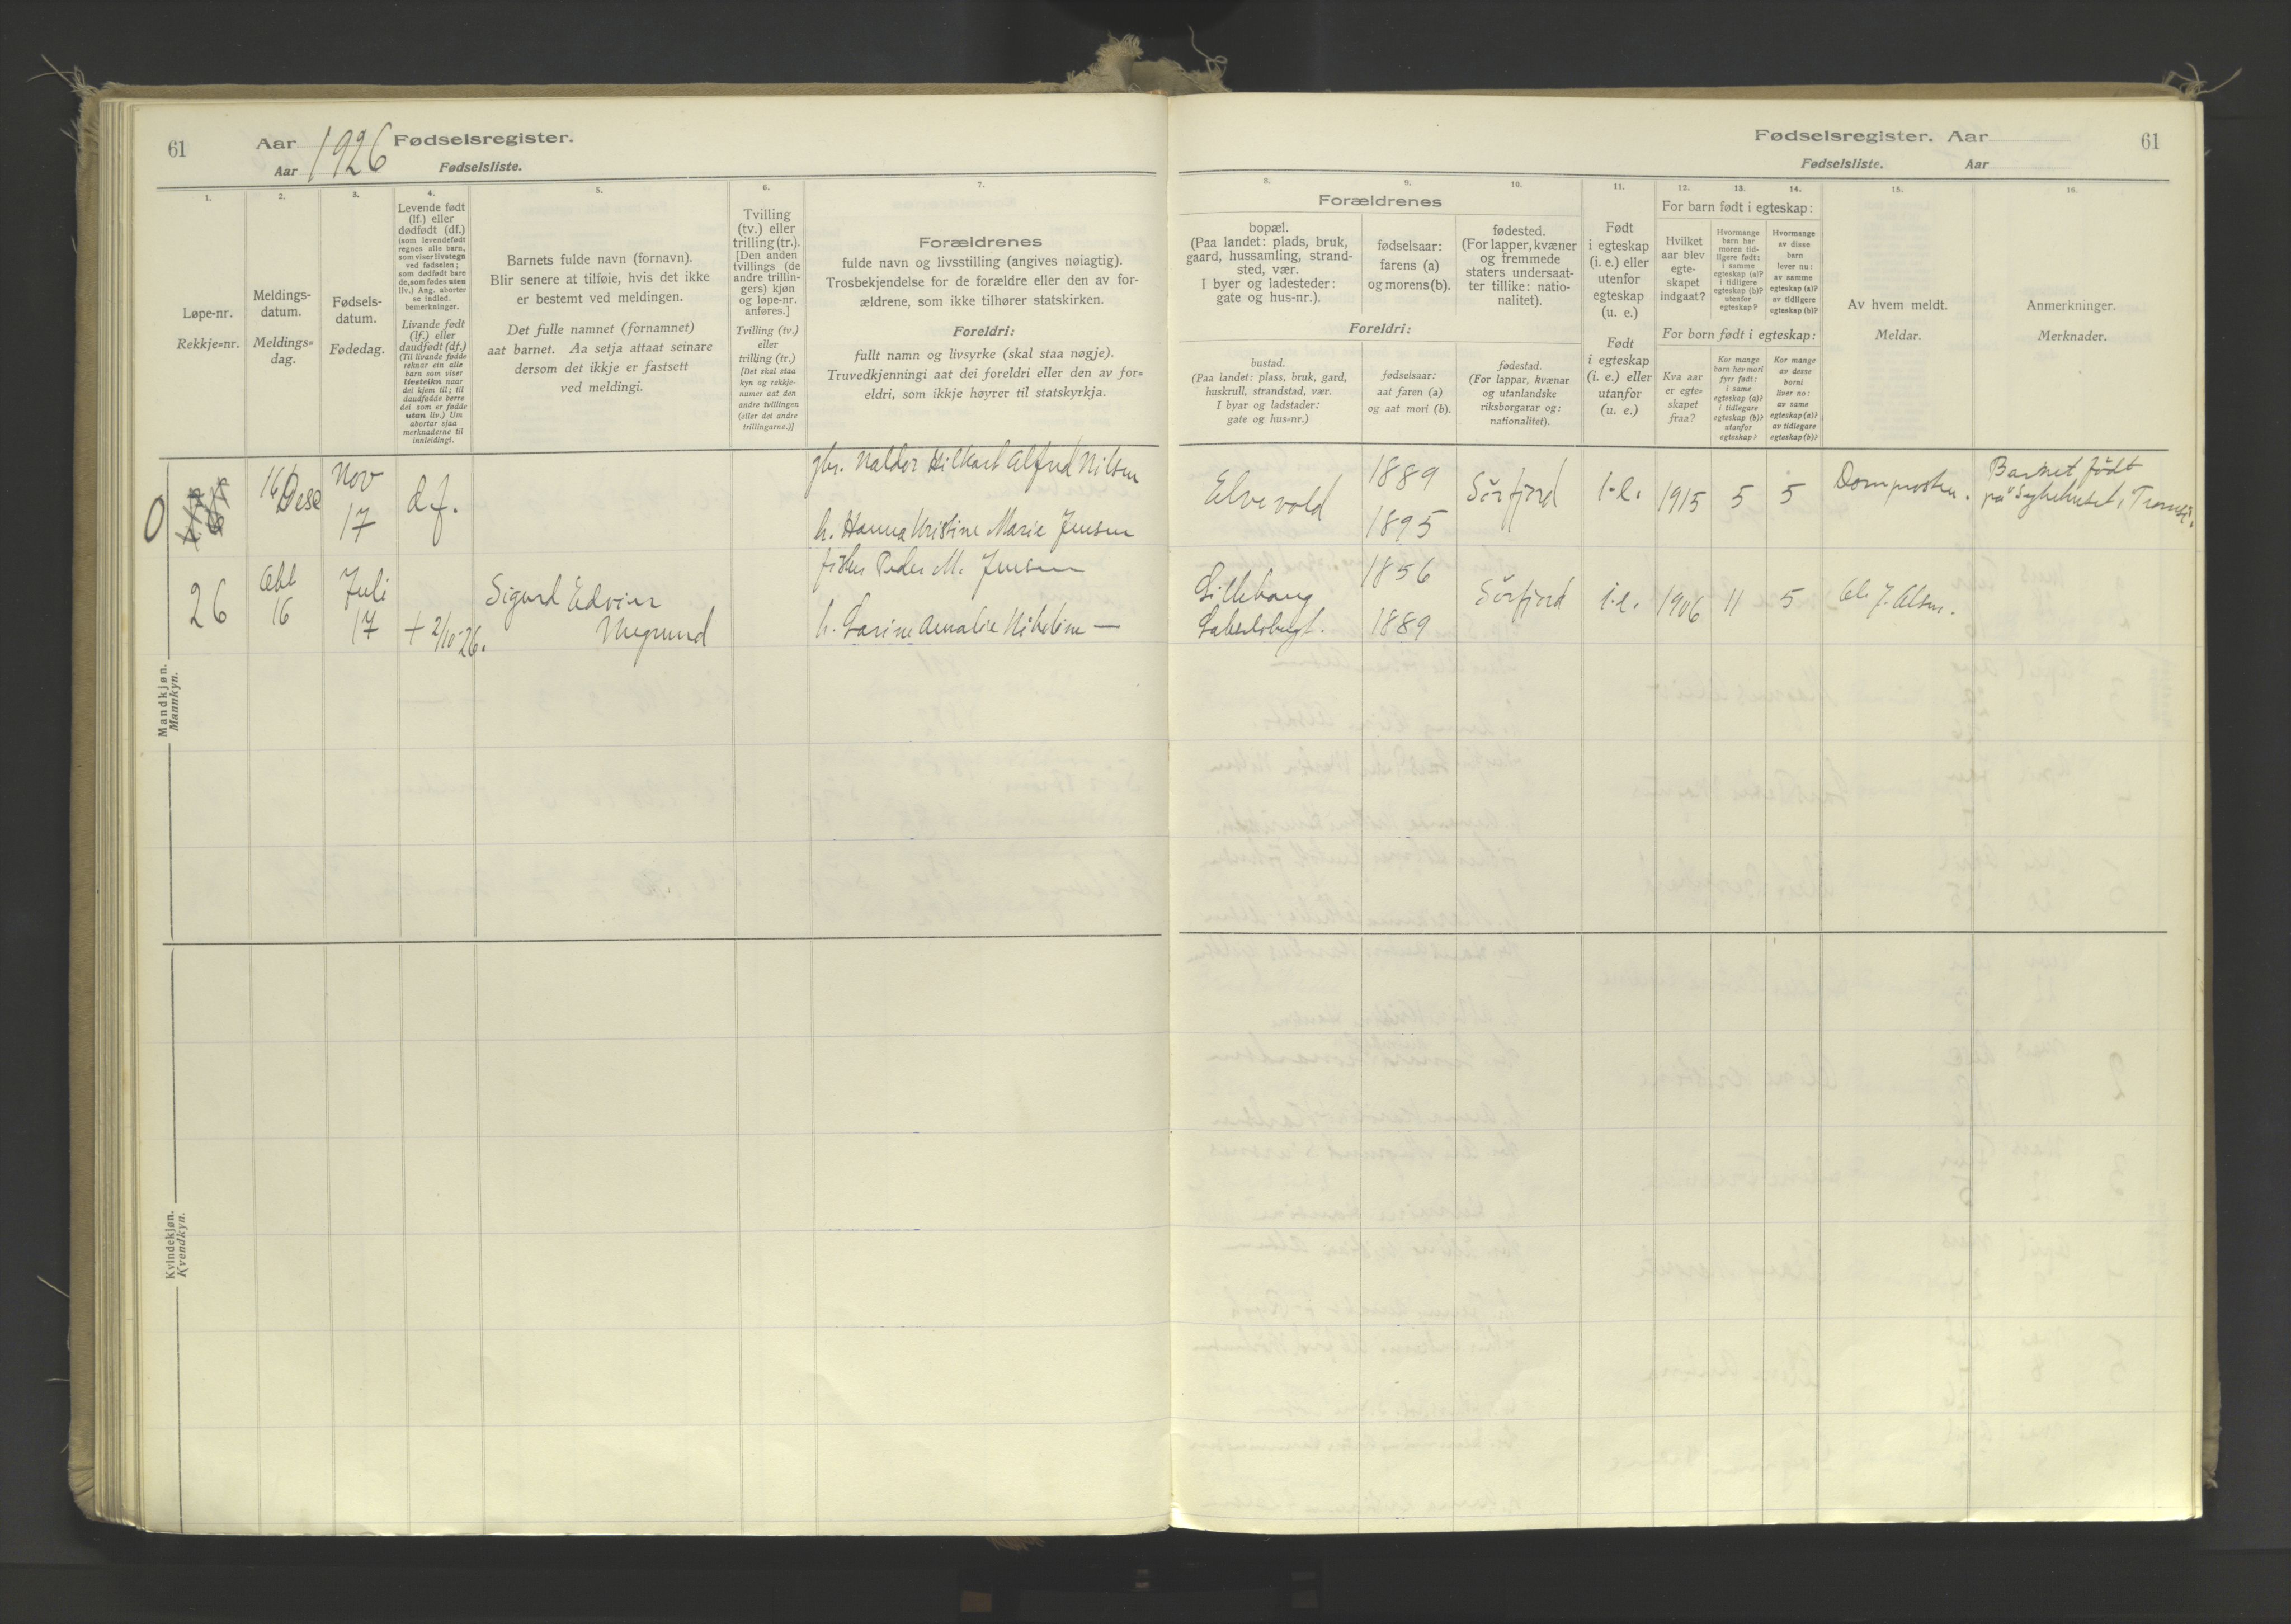 61
Aar 1926 Fødselsregister.
Aar Fødselsliste.
1.
Løpe-nr.
Rekkje=nr.
2.
Meldings-
datum.
Meldings=
dag.
3.
Fødsels-
datum.
Fødedag.
4.
Levende født
(lf.) eller
dødfødt (df.)
(som levendefødt
regnes alle barn,
som viser livstegn
ved fødselen;
som dødfødt bare
de, som fødes uten
liv.) Ang. aborter
se indled.
bemerkninger.
Livande født
(lf.) eller
daudfødt (df.)
(Til livande fødde
reknar ein alle
barn som viser
livsteikn naar
dei kjem til; til
daudfødde berre
dei som er fødde
utan liv.) Um
abortar sjaa
merknaderne til
innleidingi.
5.
Barnets fulde navn (fornavn).
Blir senere at tilføie, hvis det ikke
er bestemt ved meldingen.
Det fulle namnet (fornamnet)
aat barnet. Aa setja attaat seinare
dersom det ikkje er fastsett
ved meldingi.
6.
Tvilling
(tv.) eller
trilling (tr.).
[Den anden
tvillings (de
andre trillin-
gers) kjøn
og løpe-nr.
anføres.]
Tvilling (tv.)
eller
trilling (tr.)
[Det skal staa
kyn og rekkje-
numer aat den
andre tvillingen
(eller dei andre
trillingarne.)]
7.
Forældrenes
fulde navn og livsstilling (angives nøiagtig).
Trosbekjendelse for de forældre eller den av for-
ældrene, som ikke tilhører statskirken.
Foreldri:
fullt namn og livsyrke (skal staa nøgje).
Truvedkjenningi aat dei foreldri eller den av for=
eldri, som ikkje høyrer til statskyrkja.
Fødselsregister. Aar
61
Fødselsliste. Aar
Forældrenes
8.
bopæl.
(Paa landet: plads, bruk,
gaard, hussamling, strand-
sted, vær.
I byer og ladesteder:
gate og hus-nr.).
9.
fødselsaar:
farens (a)
og morens (b).
10.
fødested.
(For lapper, kvæner
og fremmede
staters undersaat-
ter tillike: natio-
nalitet).
Foreldri:
bustad.
(Paa landet: plass, bruk, gard,
huskrull, strandstad, vær.
I byar og ladstader:
gate og hus=nr.)
fødselsaar:
aat faren (a)
og aat mori (b).
fødestad.
(For lappar, kvænar
og utanlandske
riksborgarar og:
nationalitet).
11.
Født
i egteskap
(i. e.) eller
utenfor
egteskap
(u. e.)
Født
i egteskap
(i. e.) eller
utanfor
(u. e.)
12. 13. 14.
For barn født i egteskap:
Hvilket
aar blev
egte-
skapet
indgaat?
Hvormange
barn har
moren tid-
ligere født:
i samme
egteskap (a)?
i tidligere
egteskap (b)?
utenfor
egteskap?
Hvormange
av disse
barn
lever nu:
av samme
egteskap (a)?
av tidligere
egteskap (b)?
For born født i egteskap:
Kva aar
er egte-
skapet
fraa?
Kor mange
born hev mori
fyrr født:
i same
egteskap (a)?
i tidlegare
egteskap (b)?
utanfor
egteskap?
Kor mange
av desse
borni
liver no:
av same
egteskap (a)?
av tidlegare
egteskap (b)?
15.
Av hvem meldt.
Meldar.
16.
Anmerkninger.
Merknader.
Mandkjøn.
Mannkyn.
0
16 Dese
Nov
17
d.f.
gbr. Haldor Hilbart Alfred Nilsen
h. Hanna Kristine Marie Jensen
Elvevold
1889
1895
Sörfjord
i.e.
1915
5
5
Domprosten.
Barnet født
på Sykehuset, Tromsö.
26
Okt
16
Juli
17
+ 2/10-26.
Sigurd Edvin
Magnund
fisker Peder M. Jensen
h. Larine Amalie Nikoline —
Lillebang
1856
1889
Sörfjord
i.e.
1906
11
5
Ole J. Olsen.
Kvindekjøn.
Kvendkyn.